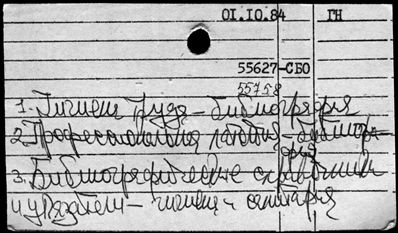 01.10.84 ГН
55627-СБО
55758
1. Гигиена труда - библиография
2. Профессиональная патология - библиогр-
афия
3. Библиографические справочники
4. Указатели - гигиена и санитария